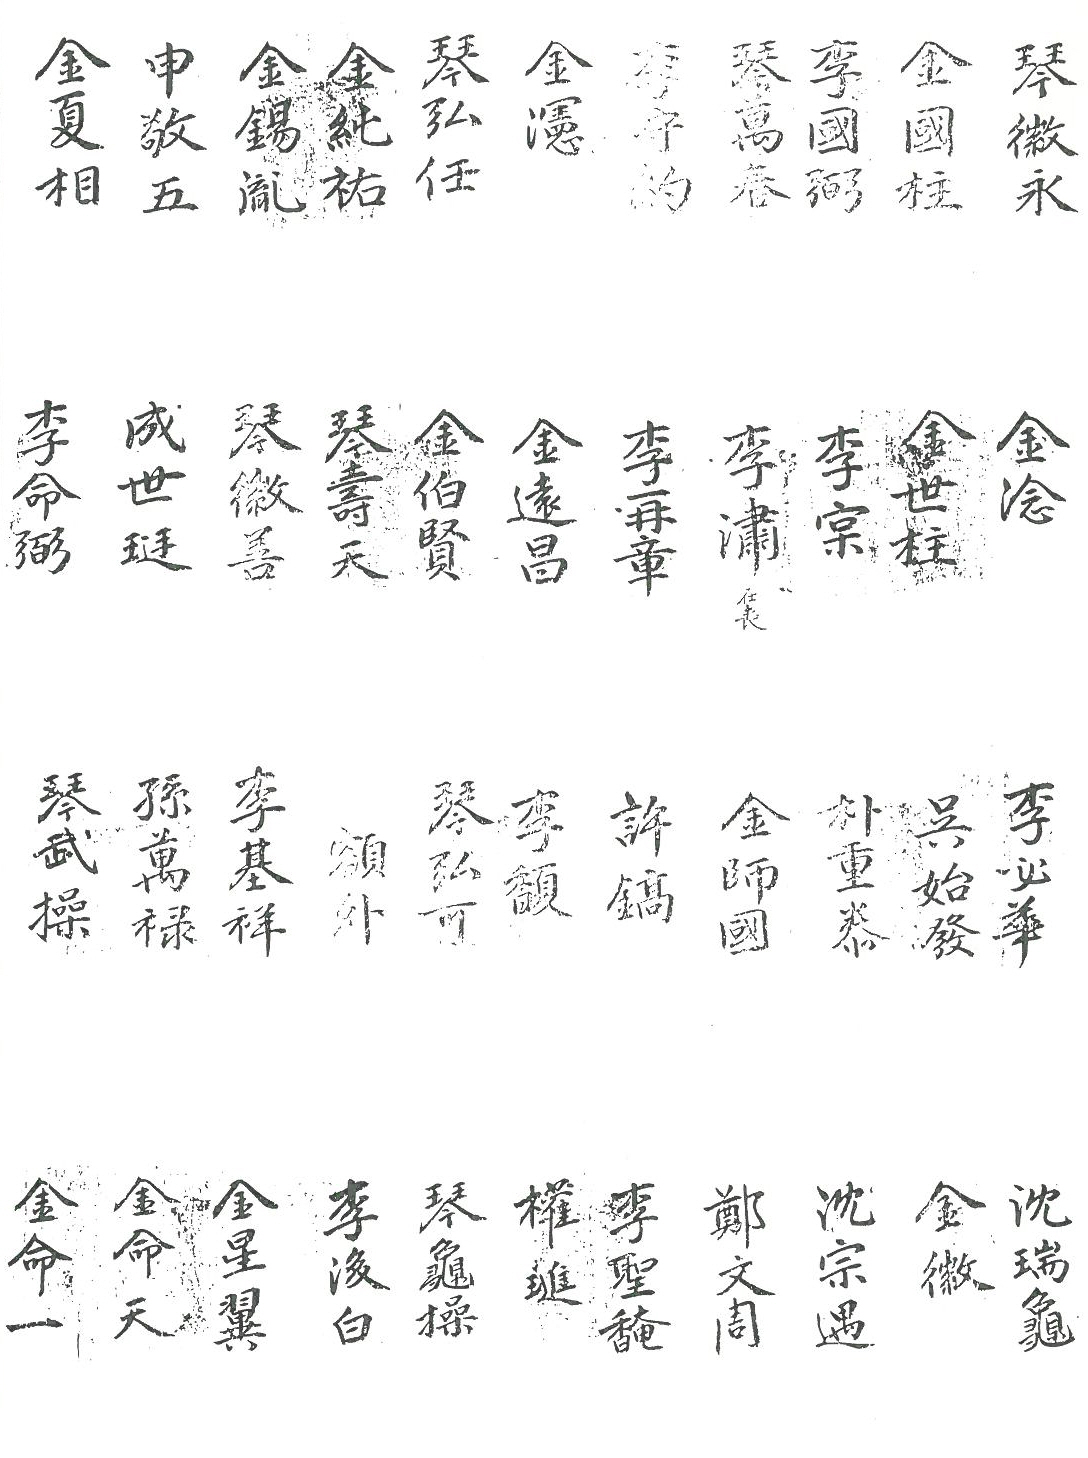 琴徽永
金國柱
李國弼
琴萬春
李守約
金濹
琴弘任
金純祐
金錫胤
申敬五
金夏相
金淰
金世柱
李宗
李潚 在喪
李再章
金遠昌
金伯賢
琴壽天
琴徽善
成世珽
李命弼
李必華
吳始發
朴重泰
金師國
許鎬
李馥
琴弘可
額外
李基祥
孫萬祿
琴武操
沈瑞龜
金徽
沈宗遇
鄭文周
李聖馣
權璡
琴龜操
李浚白
金星翼
金命天
金命一